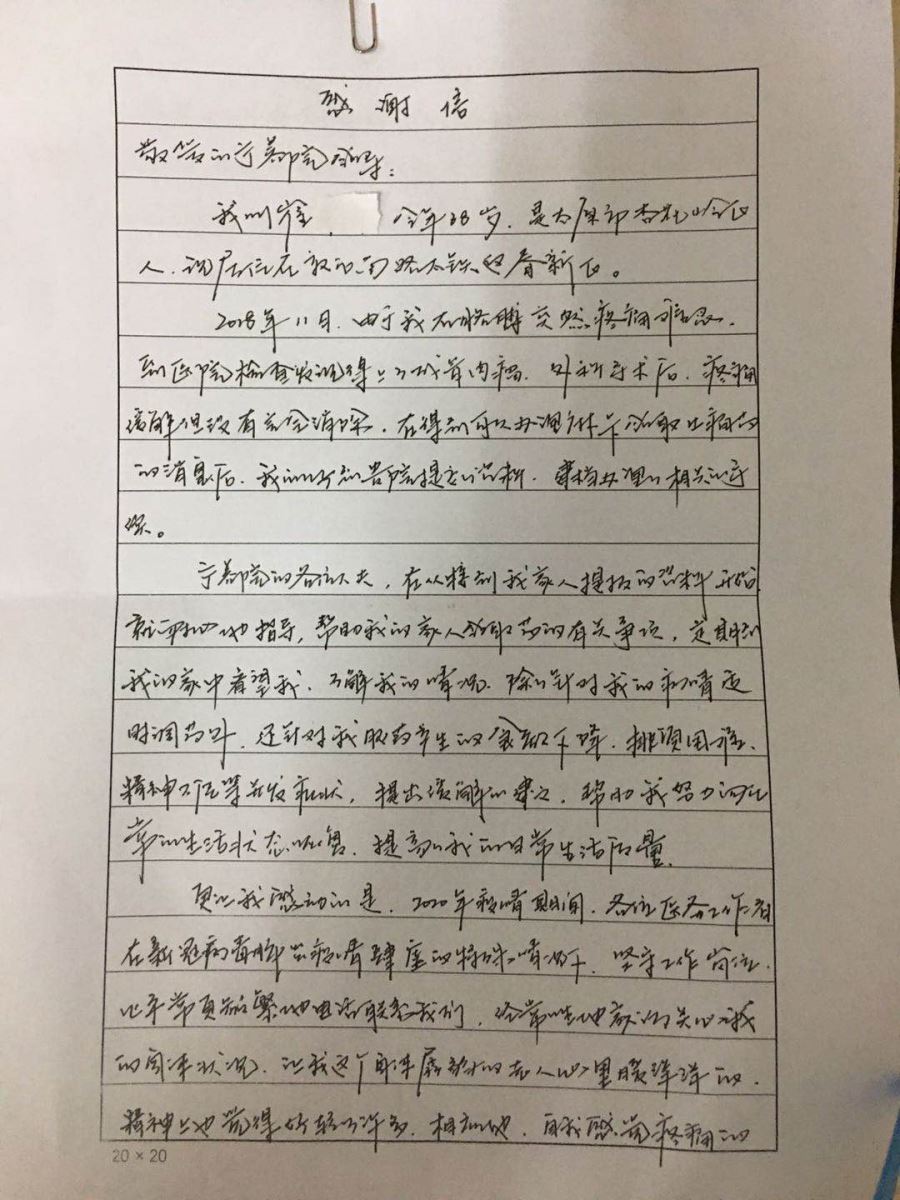 感谢信
敬爱的宁养院领导：
我叫崔金 今年38岁，是太原市杏花岭区
人，现居住在敦化南路太铁迎春新区。
2018年11月，由于我右胳膊突然疼痛难忍，
到医院检查发现得上了成骨肉瘤。外科手术后，疼痛
缓解但没有完全消除，在得到可以办理领取止痛药
的消息后，我们向宁养院提交了资料，建档办理了相关的手
续。
宁养院的各位大夫，在从接到我家人提报的资料开始
就耐心地指导，帮助我的家人领取药的有关事项，定期到
我的家中看望我，了解我的情况。除了针对我的病情适
时调药外，还针对我服药产生的食欲下降、排便困难、
精神不佳等并发症状，提出缓解的建议，帮助我努力向正
常的生活状态恢复，提高了我的日常生活质量。
更让我感动的是，2020年疫情期间，各位医务工作者
在新冠病毒肺炎疫情肆虐的特殊情况下，坚守工作岗位，
比平常更加频繁地电话联系我们，经常性地关心我
的身体状况，让我这个身体孱弱的病人心里暖洋洋的，
精神上也觉得好转了许多，相应地，自我感觉疼痛的
20×20